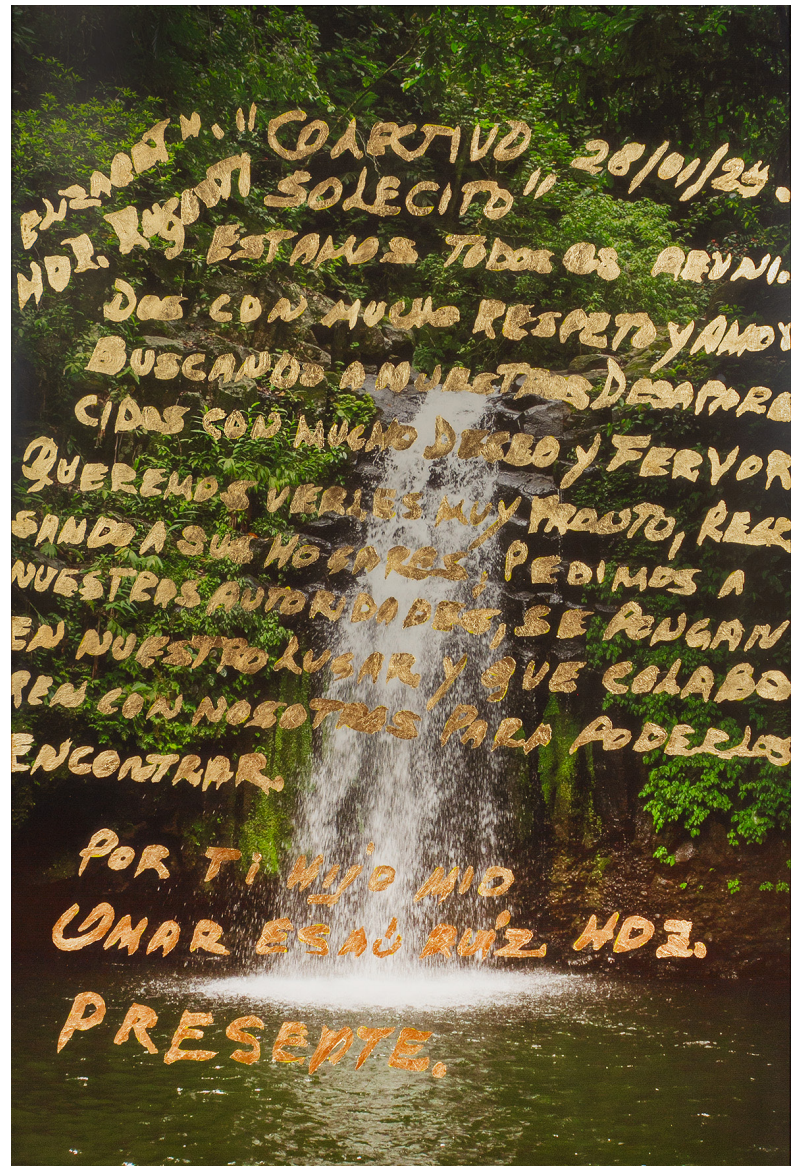 ELIZABETH. "COLECTIVO 28/01/24.
HDZ. SOLECITO"
ESTAMOS TODOS REUNI-
DOS CON MUCHO RESPETO Y AMOR
BUSCANDO A NUESTROS DESAPARE
CIDOS CON MUCHO DESEO Y FERVOR
QUEREMOS VERLES MUY PRONTO, REGRE
SANDO A SUS HOGARES, PEDIMOS A
NUESTRAS AUTORIDADES, SE PONGAN
EN NUESTRO LUGAR Y QUE COLABO
REN CON NOSOTROS PARA PODERLOS
ENCONTRAR.
POR TI HIJO MIO
OMAR ESAÚ RUÍZ HDZ.
PRESENTE.